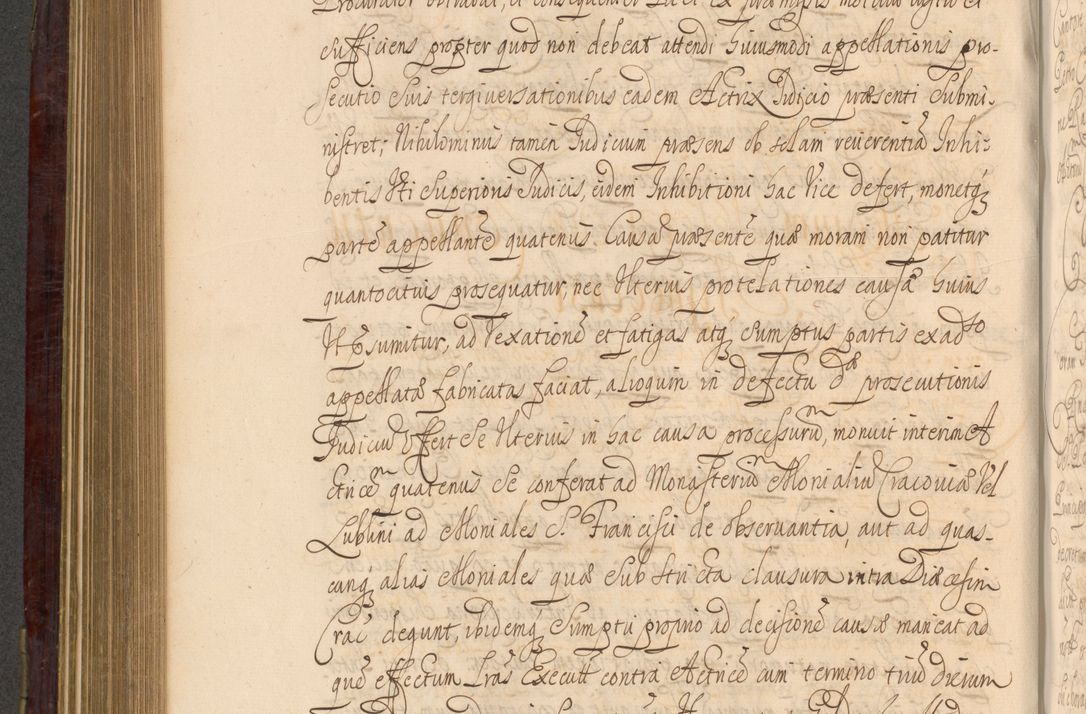 sufficiens propter quod non debeat attendi huiusmodi appellationis pro-
secutio suis tergiversationibus eadem Actrix Judicio præsenti submi-
nistret; Nihilominus tamen Judicium præsens ob solam reuerentiã Inhi-
bentis Superioris Judicis, eidem Inhibitioni hac Vice defert, monetq́
partẽ appellantẽ quatenus Causã præsentẽ quæ moram non patitur
quantocituis prosequatur, nec Ulterius protelationes causæ huius
sumitur, ad Vexationẽ et fatigas atq́ sumptus partis ex adto
appellatæ fabricatas faciat, alioquin in defectu dæ prosecutionis
Judiciũ offert se Ulterius in hac causa processurũ, monuit interim A
ctricẽ quatenus se conferat ad Monasteriũ Monialiũ Cracoviæ Vel
Lublini ad Moniales S. Francisci de observantia, aut ad quas-
cunq́ alias Moniales quæ sub stricta clausura intra Diæcesim
Crac̃ degunt, ibidemq́ sumptu proprio ad decisionẽ causæ maneat ad
quẽ effectum Lras Execut̃ contra Actricẽ cum termino triũ dierum